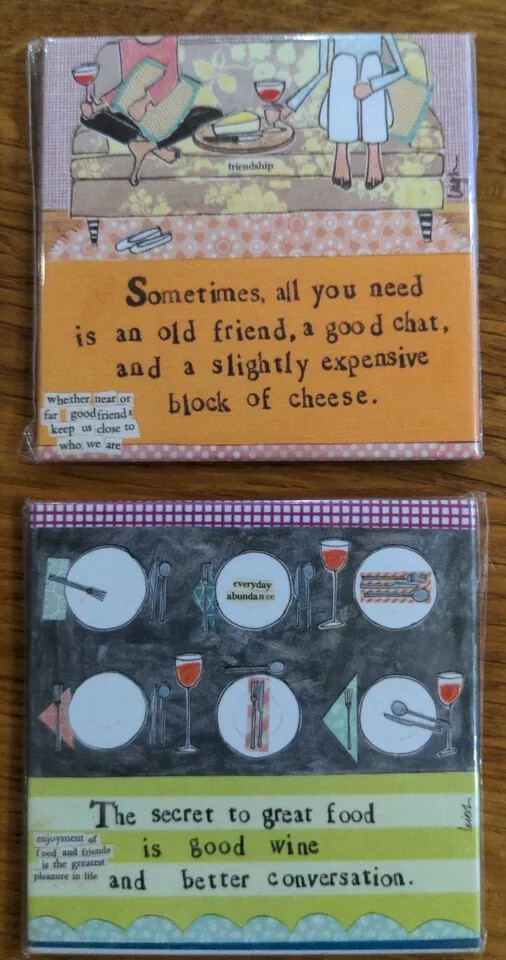 friendship
Sometimes, all you need
is an old friend, a good chat,
and a slightly expensive
block of cheese.
whether near or
far good friends
keep us close to
who we are
everyday
abundance
The secret to great food
is good wine
and better conversation.
enjoyment of
food and friends
is the greatest
pleasure in life